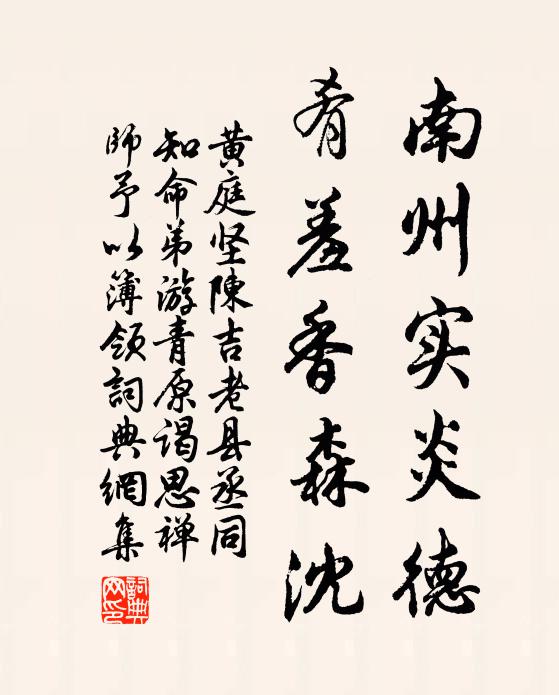 南州实炎德
肴羞香森沈
黄庭坚陳吉老县丞同
知命弟游青原谒思禅
師予以簿领詞典網集
詞典網印